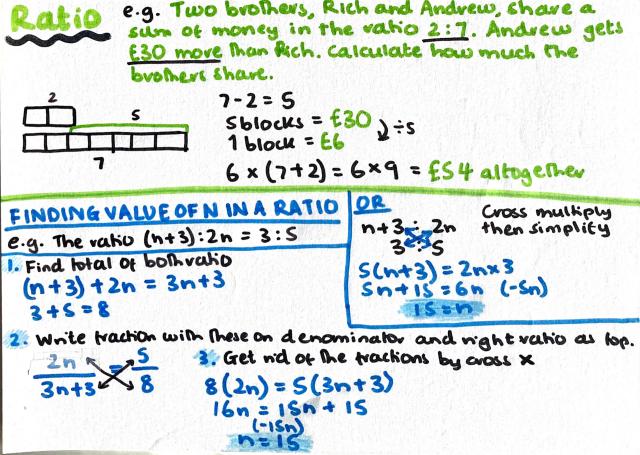 Ratio
e.g. Two brothers, Rich and Andrew, share a
sum of money in the ratio 2:7. Andrew gets
£30 more than Rich. Calculate how much the
brothers share.
2
5
7
7-2=5
5 blocks = £30
1 block = £6
÷5
6 × (7+2) = 6×9 = £54 altogether
FINDING VALUE OF N IN A RATIO
e.g. The ratio (n+3):2n = 3:5
1. Find total of both ratio
(n+3)+2n = 3n+3
3+5=8
OR
n+3 : 2n
3 : 5
Cross multiply
then simplify
5(n+3)=2n×3
5n+15=6n (-5n)
15=n
2. Write fraction with these on denominator and right ratio as top.
2n/3n+3 = 5/8
3. Get rid of the fractions by cross ×
8(2n)=5(3n+3)
16n = 15n + 15
(-15n)
n=15